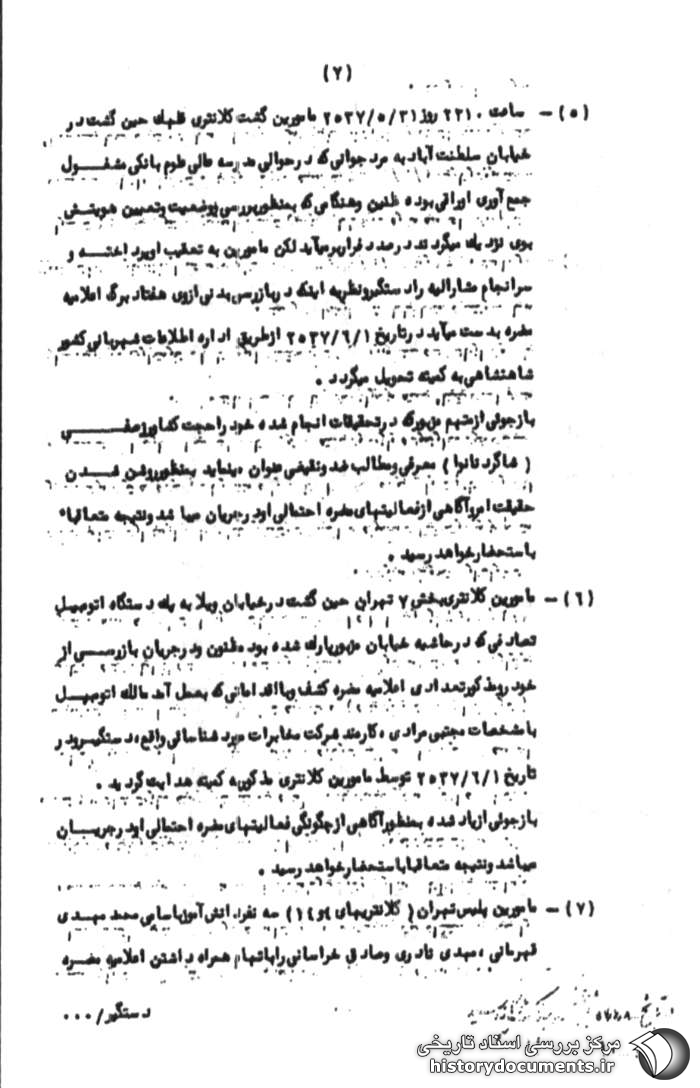 (۷)
(۵) – ساعت ۲۲۱۰ روز ۲۵۳۷/۵/۳۱ مامورین گشت کلانتری قلهک حین گشت در
خیابان سلطنت آباد به مرد جوانی که در حوالی مدرسه عالی علوم بانکی مشغول
جمع آوری اوراقی بوده ظنین وهنگامی که بمنظور بررسی وضعیت وتعیین هویتش
بوی نزدیک میگردند درصدد فرار برمیآید لکن مامورین به تعقیب او پرداخته و
سرانجام مشارالیه رادستگیر ونظر به اینکه دربازرسی بدنی ازوی هفتاد برگ اعلامیه
مضره بدست میآید درتاریخ ۲۵۳۷/۶/۱ ازطریق اداره اطلاعات شهربانی کشور
شاهنشاهی به کمیته تحویل میگردد .
بازجوئی ازمتهم مزبور که درتحقیقات انجام شده خود را حجت کشاورز
(شاگرد نانوا) معرفی ومطالب ضد ونقیضی عنوان مینماید بمنظور روشن شدن
حقیقت امر وآگاهی ازفعالیتهای مضره احتمالی او در جریان میباشد ونتیجه متعاقبا"
باستحضار خواهد رسید .
(۶) – مامورین کلانتری بخش ۷ تهران حین گشت درخیابان ویلا به یک دستگاه اتومبیل
تصادفی که درحاشیه خیابان مزبور پارک شده بود مظنون ودرجریان بازرسی از
خودرو مذکور تعدادی اعلامیه مضره کشف وبا اقداماتی که بعمل آمد مالک اتومبیل
بامشخصات مجتبی مرادی ، کارمند شرکت مخابرات مورد شناسائی واقع ، دستگیر ودر
تاریخ ۲۵۳۷/۶/۱ توسط مامورین کلانتری مذکور به کمیته هدایت گردید .
بازجوئی ازیاد شده بمنظور آگاهی ازچگونگی فعالیتهای مضره احتمالی او درجریان
میباشد ونتیجه متعاقبا باستحضار خواهد رسید .
(۷) – مامورین پلیس تهران ( کلانتریهای ۴و۱۴) سه نفر دانش آموز باسامی محمد مهدی
قهرمانی ، مهدی نادری وصادق خراسانی راباتهام همراه داشتن اعلامیه مضره
دستگیر/۰۰۰
مرکز بررسی اسناد تاریخی
historydocuments.ir